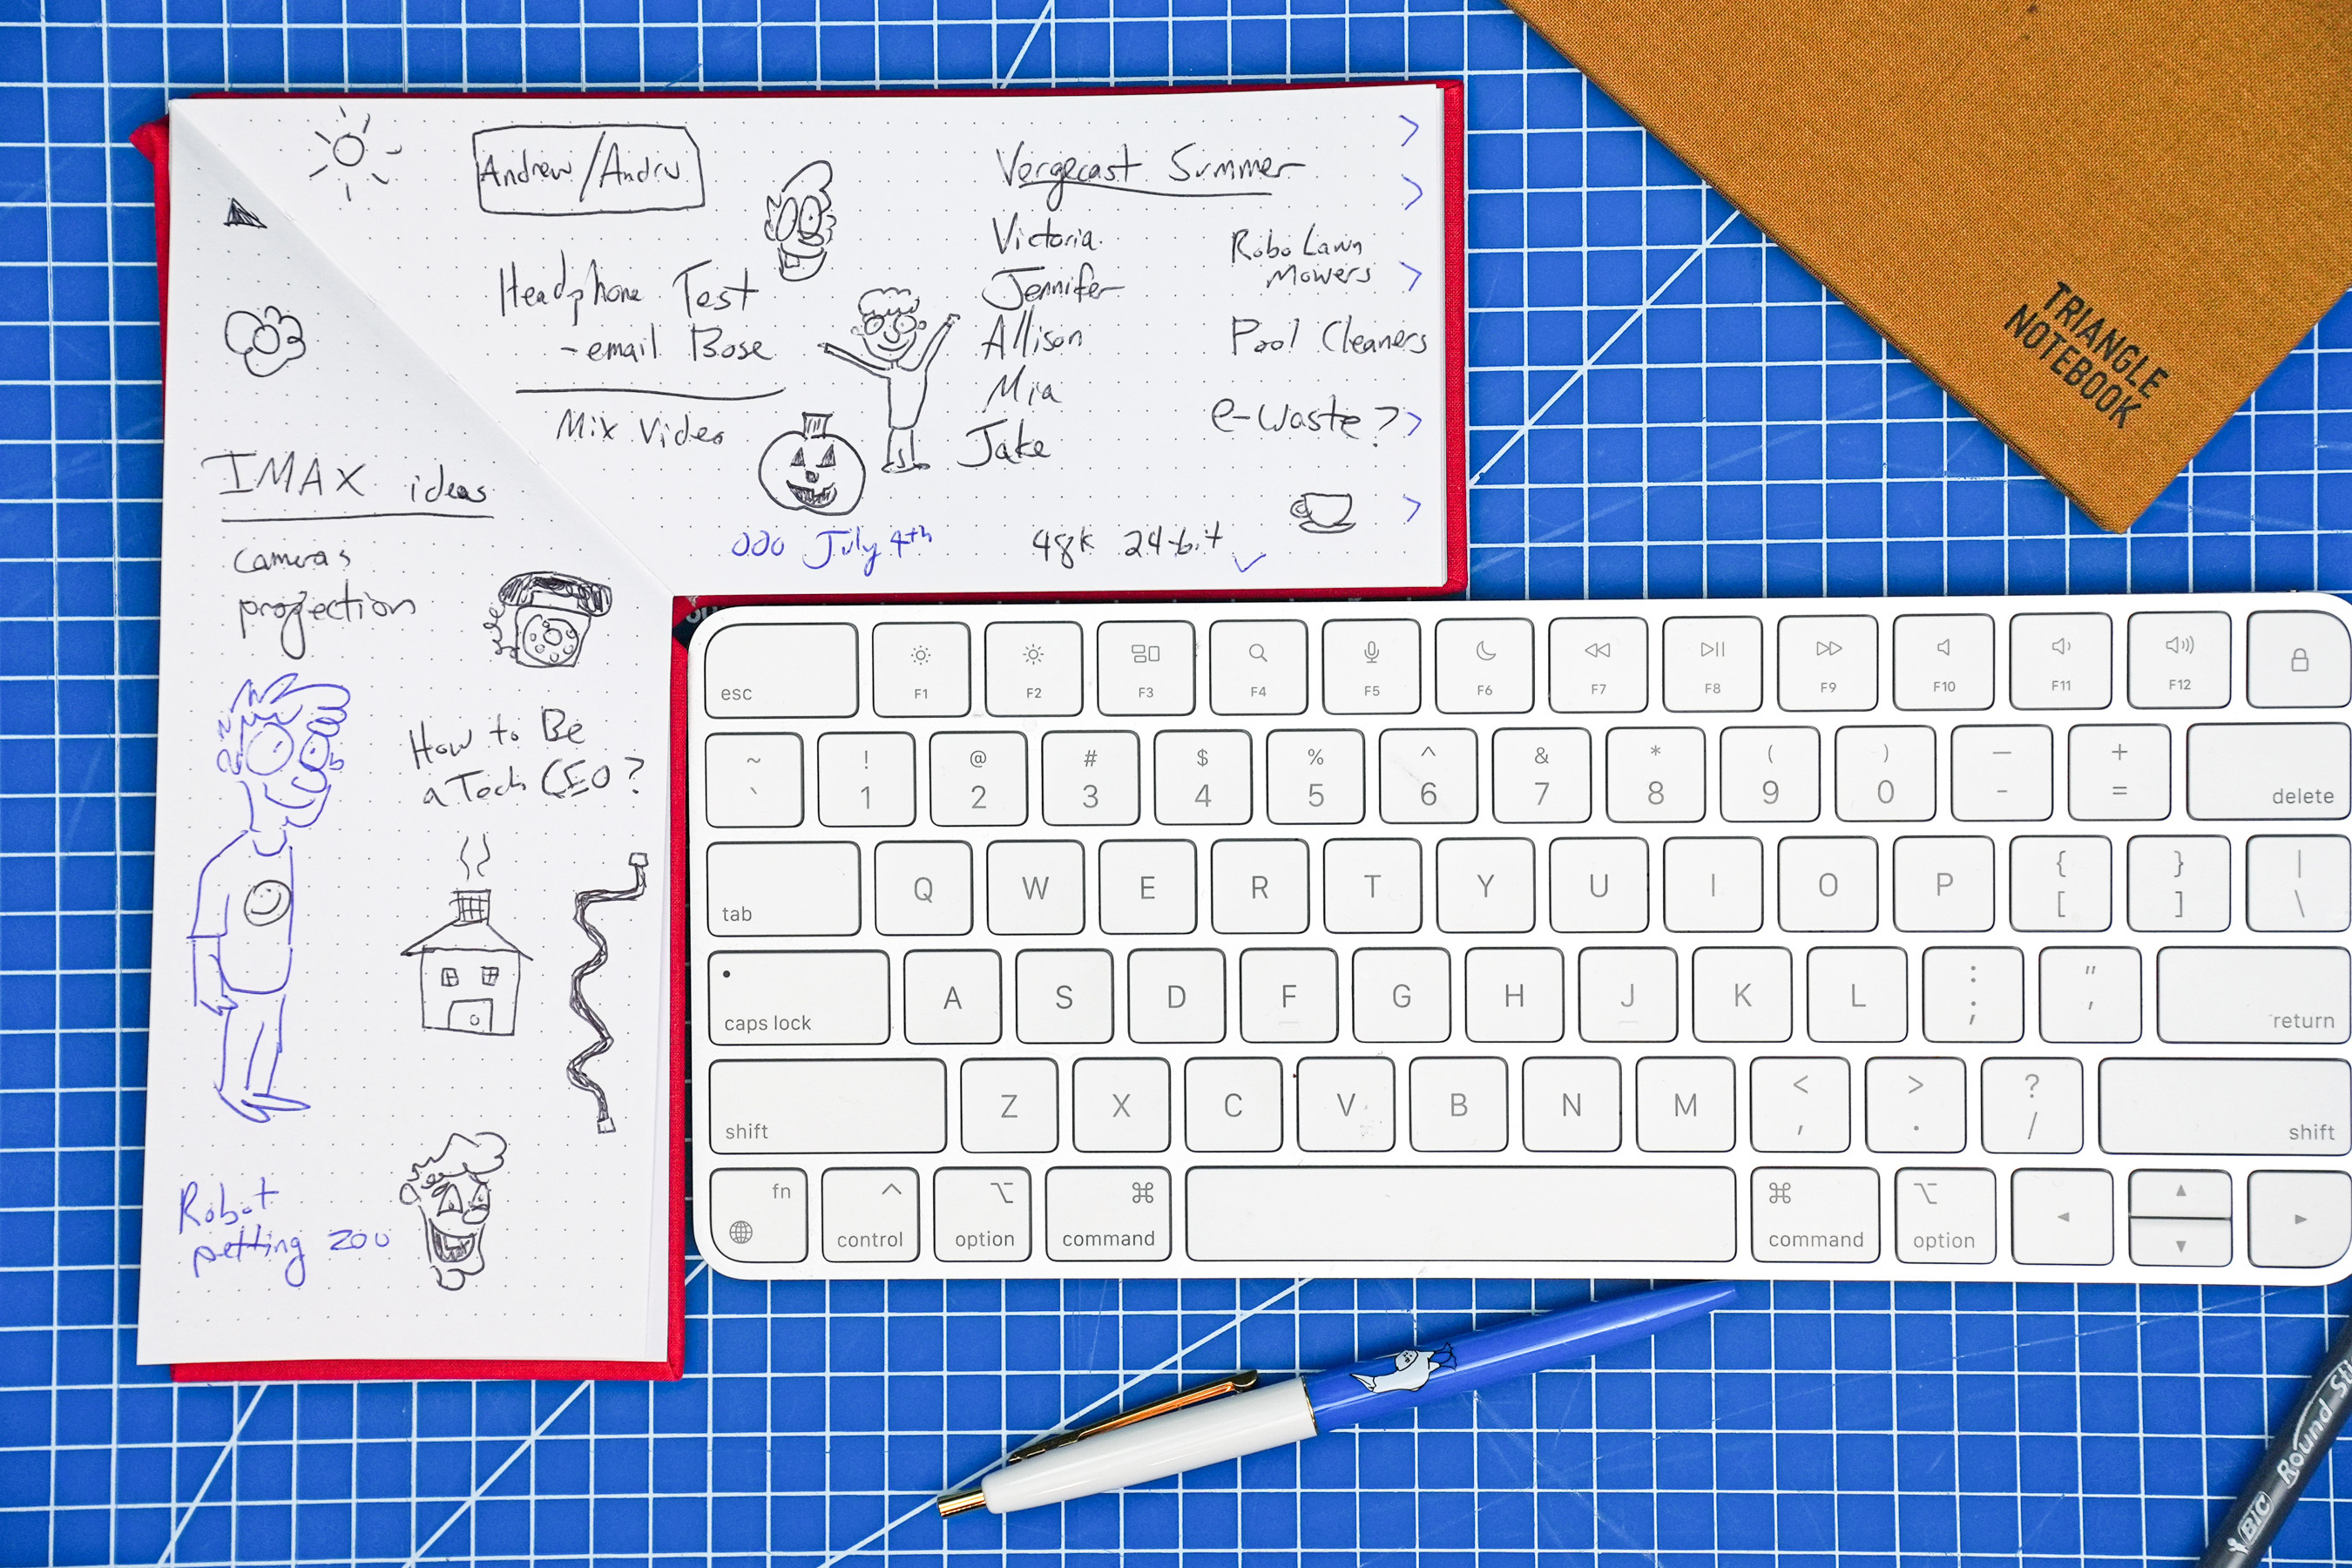 Andrew/Andru
Headphone Test
- email Bose
Mix Video
OOO July 4th
Vergecast Summer
Victoria
Jennifer
Allison
Mia
Jake
Robo Lawn
Mowers
Pool Cleaners
e-waste?
48k 24-bit
IMAX ideas
cameras
projection
How to Be
a Tech CEO?
Robot
petting zoo
TRIANGLE
NOTEBOOK
esc F1 F2 F3 F4 F5 F6 F7 F8 F9 F10 F11 F12
~ ! @ # $ % ^ & * ( ) — +
` 1 2 3 4 5 6 7 8 9 0 - = delete
tab Q W E R T Y U I O P { [ } ] | \
caps lock A S D F G H J K L : ; " ' return
shift Z X C V B N M < , > . ? / shift
fn control option command command option
BIC Round